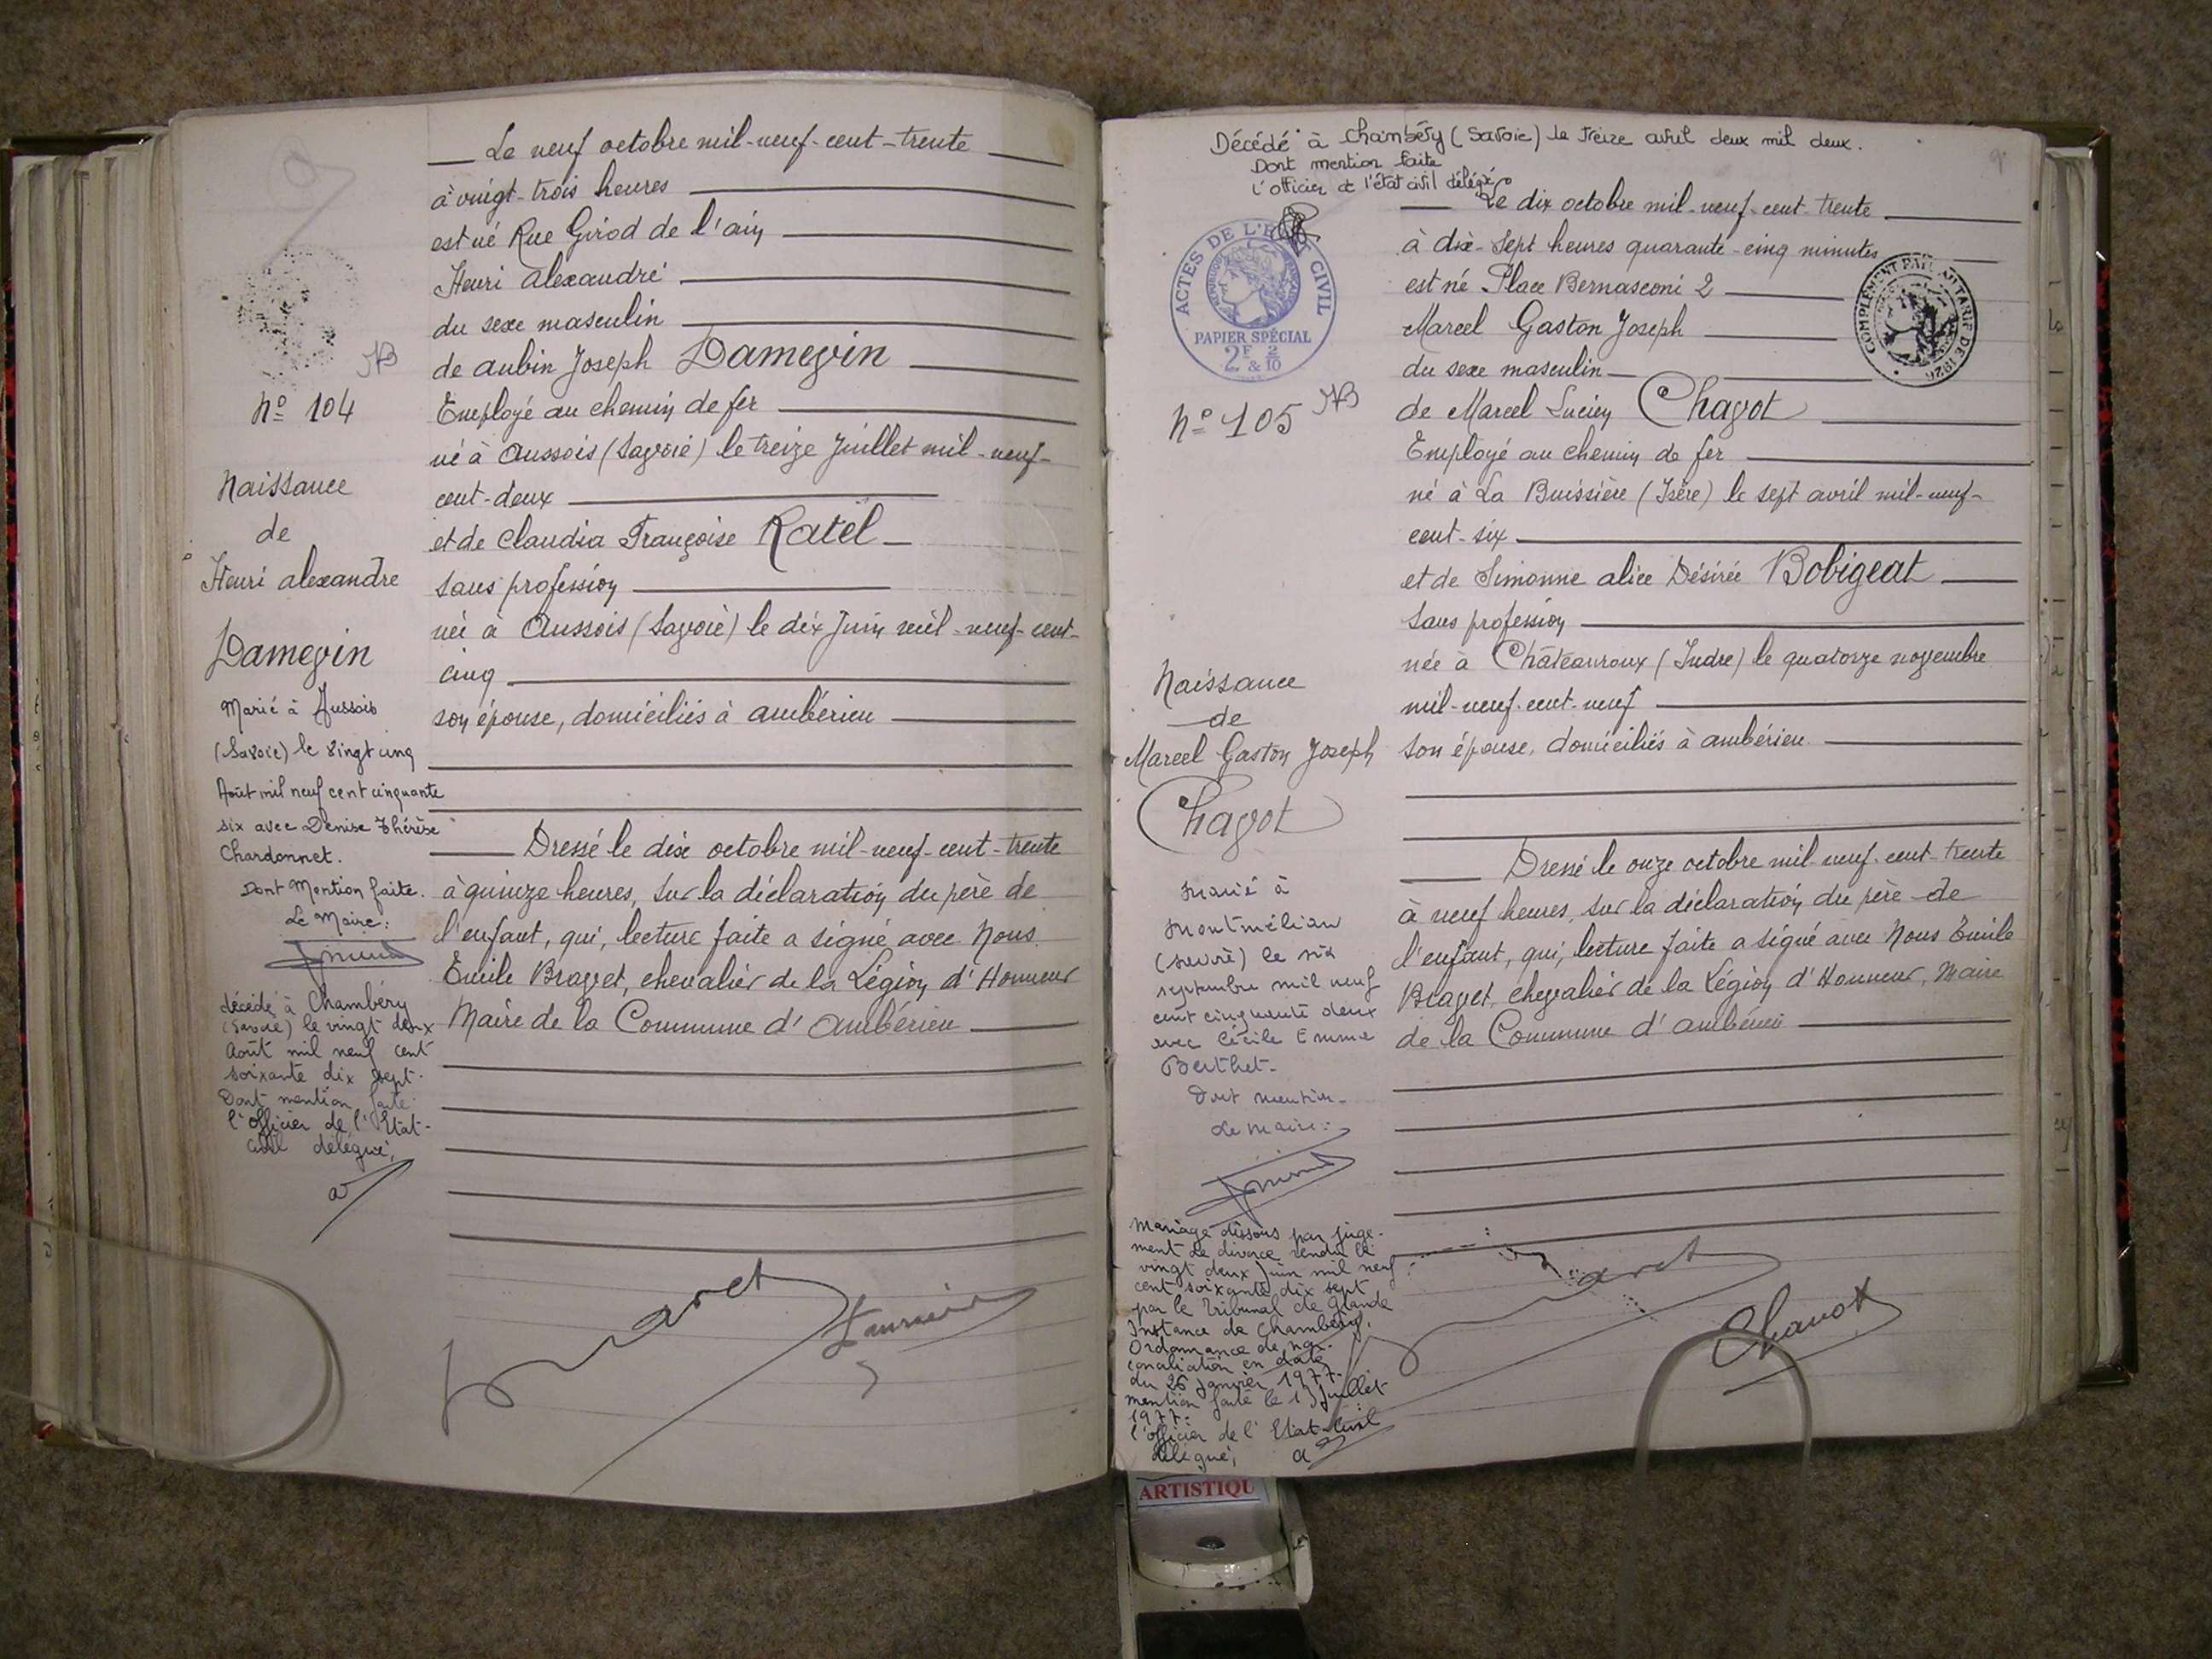 Le neuf octobre mil-neuf-cent-trente
à vingt-trois heures
est né Rue Girod de l'ain
Henri alexandre
du sexe masculin
de aubin Joseph Damevin
Employé au chemin de fer
né à Aussois (Savoie) le treize Juillet mil-neuf-
cent-deux
et de Claudia Françoise Ratel
sans profession
née à Aussois (Savoie) le dix Juin mil-neuf-cent-
cinq
son épouse, domiciliés à ambérieu
Dressé le dix octobre mil-neuf-cent-trente
à quinze heures, sur la déclaration du père de
l'enfant, qui, lecture faite a signé avec Nous
Emile Bravet, chevalier de la Légion d'Honneur
Maire de la Commune d'ambérieu
NB
N° 104
Naissance
de
Henri alexandre
Damevin
Marié à Aussois
(Savoie) le vingt cinq
Août mil neuf cent cinquante
six avec Denise Thérèse
Chardonnet.
Dont Mention faite.
Le Maire:
décédé à Chambéry
(Savoie) le vingt deux
Août mil neuf cent
soixante dix sept.
Dont mention faite.
l'Officier de l'Etat-
Civil délégué,
Bravet
Damevin
Décédé à Chambéry (Savoie) le treize avril deux mil deux.
Dont mention faite
l'officier de l'état civil délégué
Le dix octobre mil-neuf-cent-trente
à dix-sept heures quarante-cinq minutes
est né Place Bernasconi 2
Marcel Gaston Joseph
du sexe masculin
de Marcel Lucien Chavot
Employé au chemin de fer
né à La Buissière (Isère) le sept avril mil-neuf-
cent-six
et de Simonne alice Désirée Bobigeat
sans profession
née à Châteauroux (Indre) le quatorze novembre
mil-neuf-cent-neuf
son épouse, domiciliés à ambérieu
Dressé le onze octobre mil-neuf-cent-trente
à neuf heures, sur la déclaration du père de
l'enfant, qui, lecture faite a signé avec Nous Emile
Bravet, chevalier de la Légion d'Honneur, Maire
de la Commune d'ambérieu
ACTES DE L'ÉTAT CIVIL
RÉPUBLIQUE FRANÇAISE
PAPIER SPÉCIAL
2F & 2/10
COMPLÉMENT PAR AU TARIF DE 1926
N° 105
NB
Naissance
de
Marcel Gaston Joseph
Chavot
Marié à
Montmélian
(Savoie) le six
septembre mil neuf
cent cinquante deux
avec Cécile Emma
Berthet.
Dont mention.
Le Maire:
Mariage dissous par juge-
ment de divorce rendu le
vingt deux Juin mil neuf
cent soixante dix sept
par le Tribunal de Grande
Instance de Chambéry.
Ordonnance de non-
conciliation en date
du 26 Janvier 1977.
mention faite le 13 Juillet
1977.
l'Officier de l'Etat-Civil
délégué,
Bravet
Chavot
ARTISTIQU